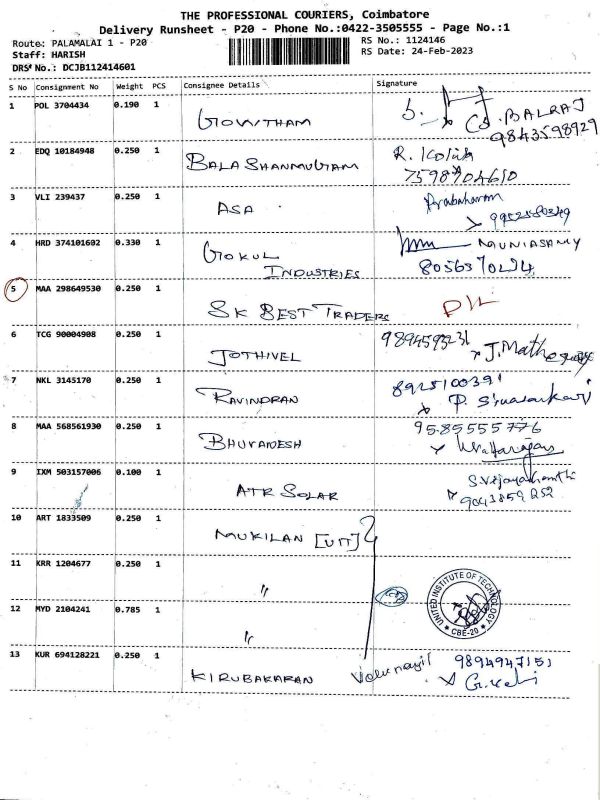 THE PROFESSIONAL COURIERS, Coimbatore
Delivery Runsheet - P20 - Phone No.:0422-3505555 - Page No.:1
Route: PALAMALAI 1 - P20 RS No.: 1124146
Staff: HARISH RS Date: 24-Feb-2023
DRS No.: DCJB112414601
S No Consignment No Weight PCS Consignee Details Signature
1 POL 3704434 0.190 1 GOWTHAM BALRAJ
9843598929
2 EDQ 10184948 0.250 1 BALA SHANMUGAM R.
3 VLI 239437 0.250 1 ASA
4 HRD 374101602 0.330 1 GOKUL INDUSTRIES MUNIASAMY
5 MAA 298649530 0.250 1 SK BEST TRADERS
6 TCG 90004908 0.250 1 JOTHIVEL
7 NKL 3145170 0.250 1 RAVINDRAN
8 MAA 568561930 0.250 1 BHUVANESH
9585555776
9 IXM 503157006 0.100 1 ATR SOLAR
9043859252
10 ART 1833509 0.250 1 MUKILAN [UIT]
11 KRR 1204677 0.250 1 "
12 MYD 2104241 0.785 1 "
UNITED INSTITUTE OF TECHNOLOGY
CBE-20
13 KUR 694128221 0.250 1 KIRUBAKARAN 9894947151